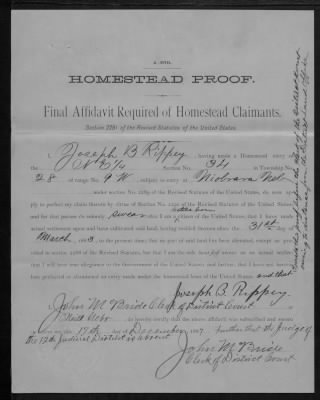 HOMESTEAD PROOF.
Final Affidavit Required of Homestead Claimants.
Section 2291 of the Revised Statutes of the United States.
I, Joseph B Rippey, having made a Homestead entry
Section No. 34 in Township No.
28 of range No. 9 W, subject to entry at Niobrara Neb
under section No. 2289 of the Revised Statutes of the United States, do now apply
to perfect my claim thereto by virtue of Section No. 2291 of the Revised Statutes of the United States;
and for that purpose do solemnly swear that I am a citizen of the United States; that I have made
actual settlement upon and have cultivated said land, having resided thereon since the 31st day of
March, to the present time; that no part of said land has been alienated, except as provided
in section 2288 of the Revised Statutes, but that I am the sole bona fide owner as an actual settler;
that I will bear true allegiance to the Government of the United States; and further, that I have not heretofore
perfected or abandoned an entry made under the homestead laws of the United States and that
Joseph B. Rippey
I, John M Bride Clerk of District Court
do hereby certify that the above affidavit was subscribed and sworn
to before me this 17th day of December, further that the Judge of
the 12th Judicial District is absent
John M Bride
Clerk of District Court